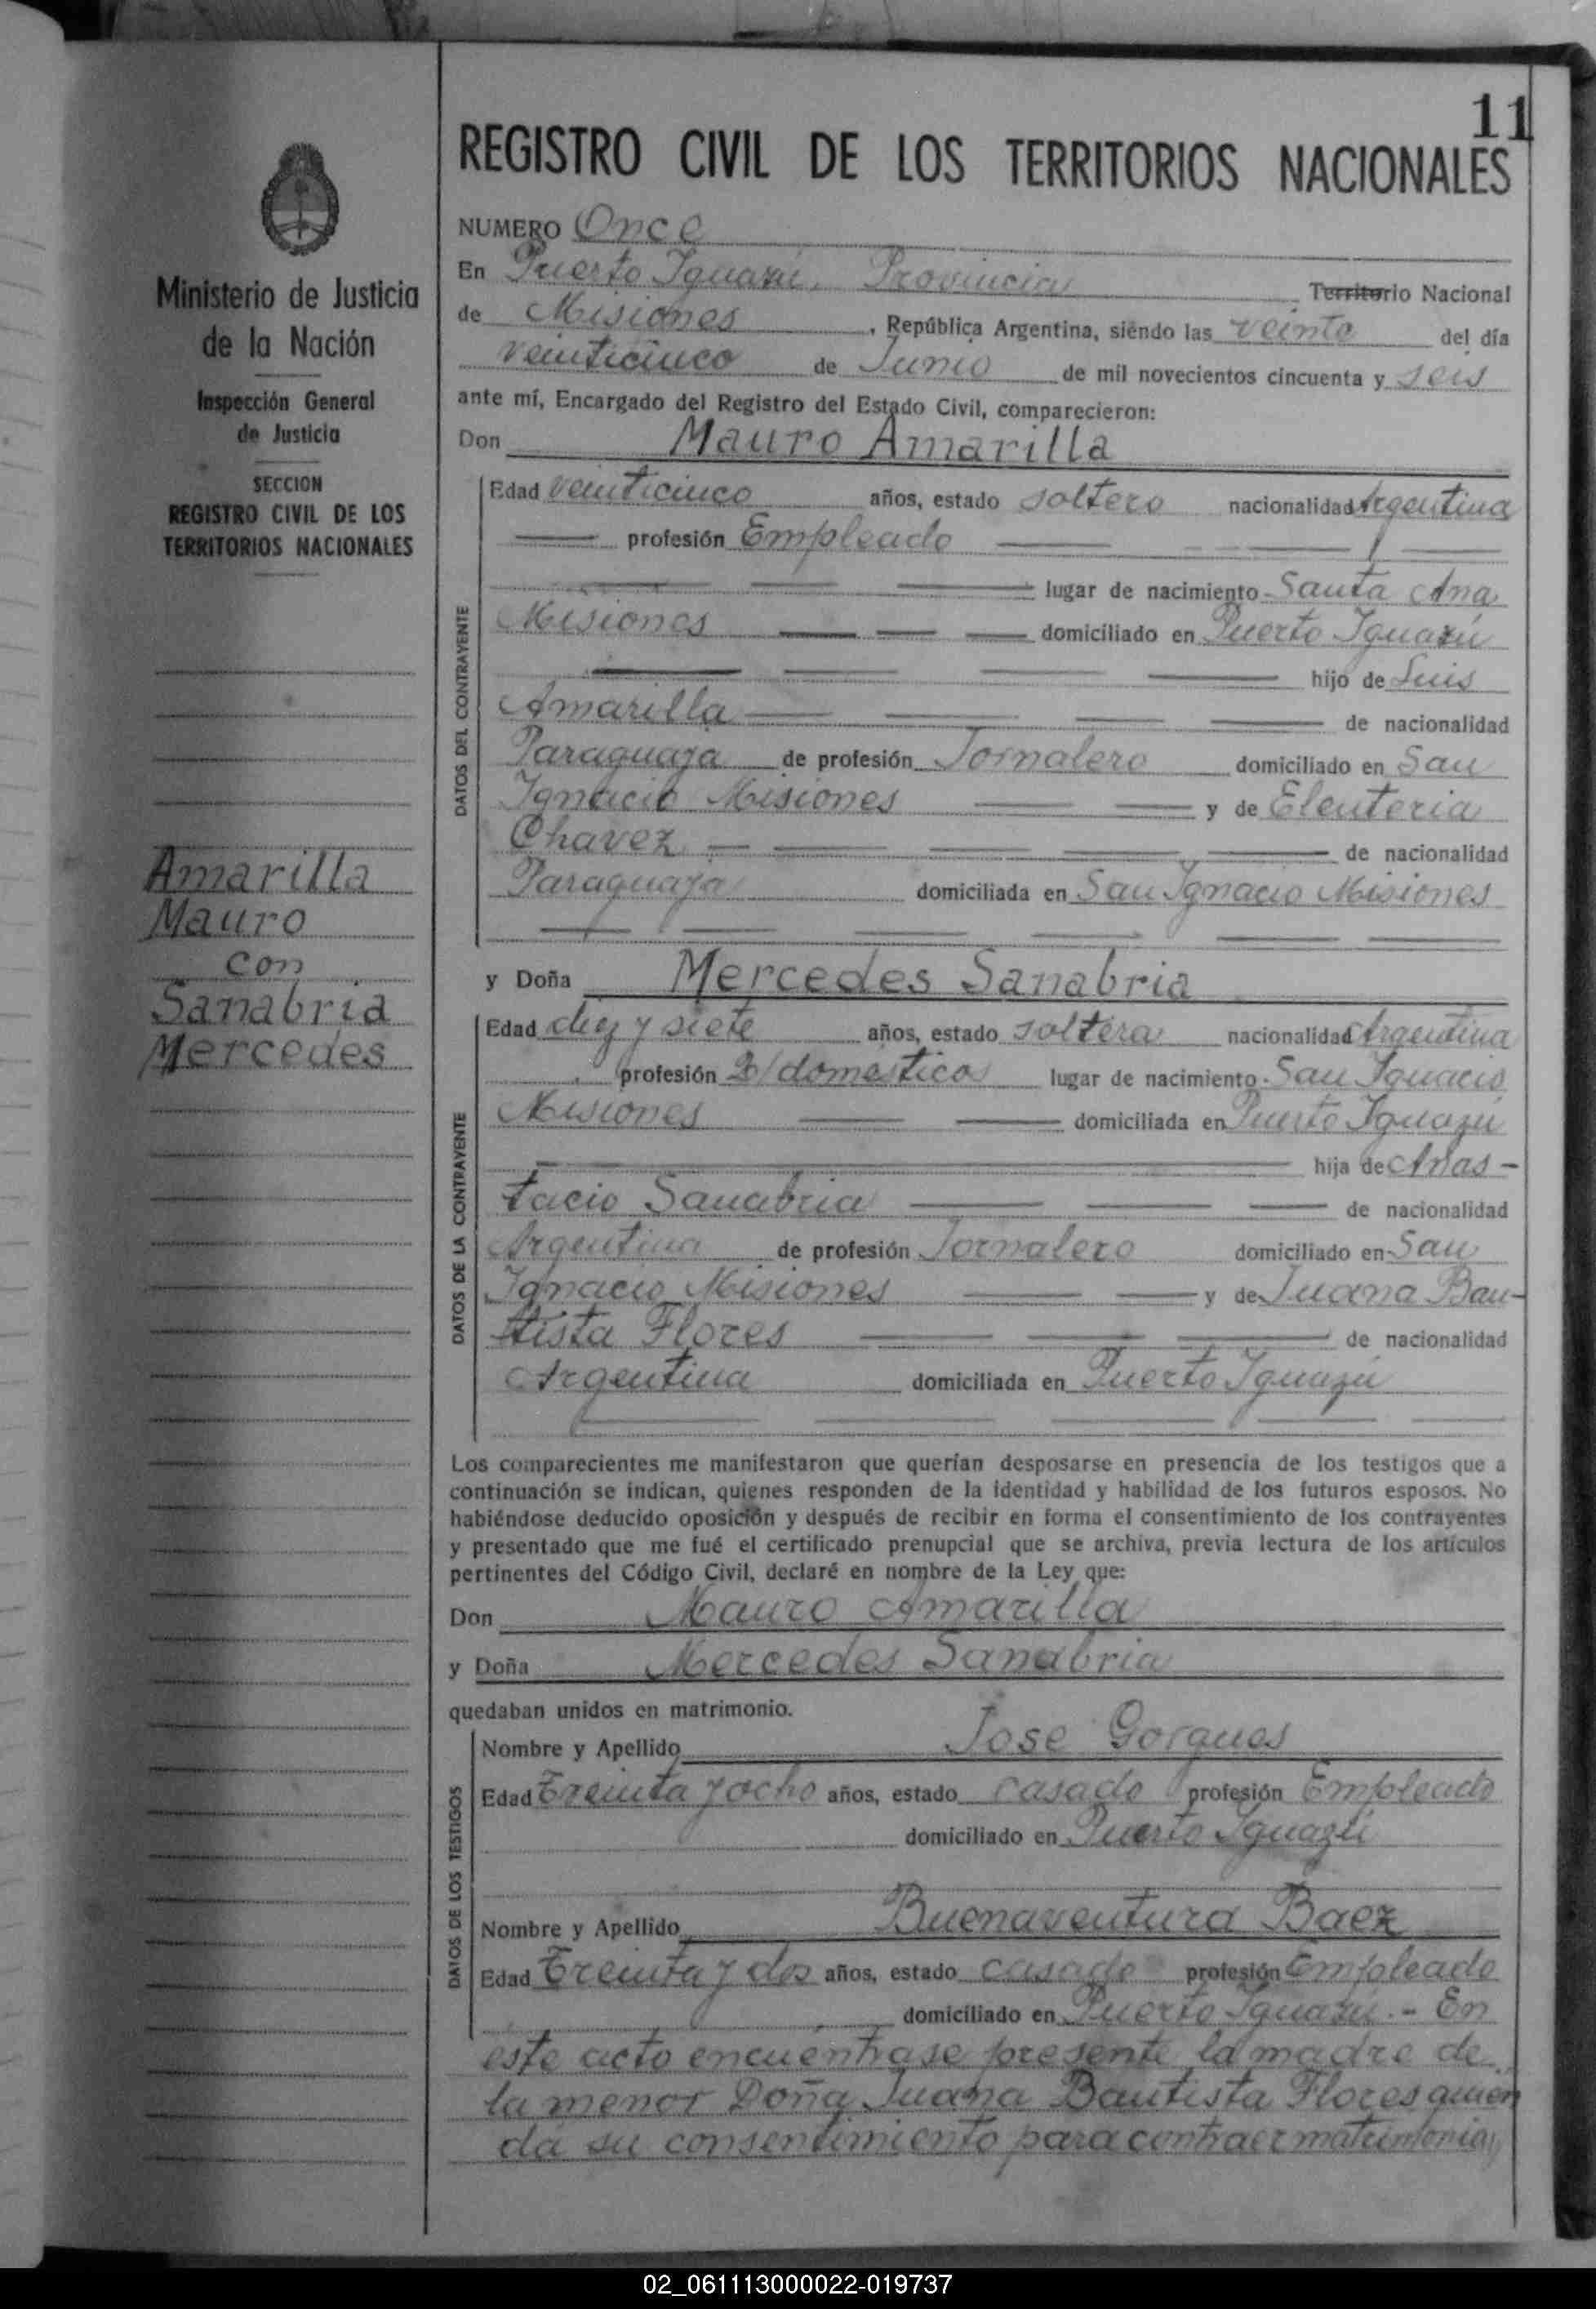 11
REGISTRO CIVIL DE LOS TERRITORIOS NACIONALES
Ministerio de Justicia
de la Nación
Inspección General
de Justicia
SECCION
REGISTRO CIVIL DE LOS
TERRITORIOS NACIONALES
Amarilla
Mauro
con
Sanabria
Mercedes
NUMERO Once
En Puerto Iguazú, Provincia Territorio Nacional
de Misiones, República Argentina, siéndo las veinte del día
veinticinco de Junio de mil novecientos cincuenta y seis
ante mí, Encargado del Registro del Estado Civil, comparecieron:
Don Mauro Amarilla
DATOS DEL CONTRAYENTE
Edad veinticinco años, estado soltero nacionalidad Argentina
profesión Empleado
lugar de nacimiento Santa Ana
Misiones domiciliado en Puerto Iguazú
hijo de Luis
Amarilla de nacionalidad
Paraguaya de profesión Jornalero domiciliado en San
Ignacio Misiones y de Eleuteria
Chavez de nacionalidad
Paraguaya domiciliada en San Ignacio Misiones
y Doña Mercedes Sanabria
DATOS DE LA CONTRAYENTE
Edad diez y siete años, estado soltera nacionalidad Argentina
profesión domésticos lugar de nacimiento San Ignacio
Misiones domiciliada en Puerto Iguazú
hija de Anas-
tacio Sanabria de nacionalidad
Argentina de profesión Jornalero domiciliado en San
Ignacio Misiones y de Juana Bau-
tista Flores de nacionalidad
Argentina domiciliada en Puerto Iguazú
Los comparecientes me manifestaron que querían desposarse en presencia de los testigos que a
continuación se indican, quienes responden de la identidad y habilidad de los futuros esposos. No
habiéndose deducido oposición y después de recibir en forma el consentimiento de los contrayentes
y presentado que me fué el certificado prenupcial que se archiva, previa lectura de los artículos
pertinentes del Código Civil, declaré en nombre de la Ley que:
Don Mauro Amarilla
y Doña Mercedes Sanabria
quedaban unidos en matrimonio.
DATOS DE LOS TESTIGOS
Nombre y Apellido Jose Gorgues
Edad Treinta y ocho años, estado casado profesión Empleado
domiciliado en Puerto Iguazú
Nombre y Apellido Buenaventura Baez
Edad Treinta y dos años, estado casado profesión Empleado
domiciliado en Puerto Iguazú.- En
este acto encuéntrase presente la madre de
la menor Doña Juana Bautista Flores quien
dá su consentimiento para contraer matrimonio
02_061113000022-019737